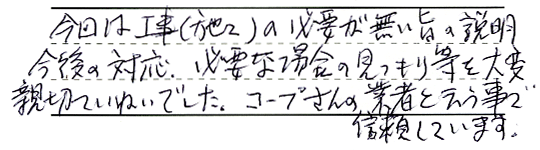 今回は工事(施工)の必要が無い旨の説明
今後の対応、必要な場合の見つもり等を大変
親切ていねいでした。コープさんの業者と云う事で
信頼しています。